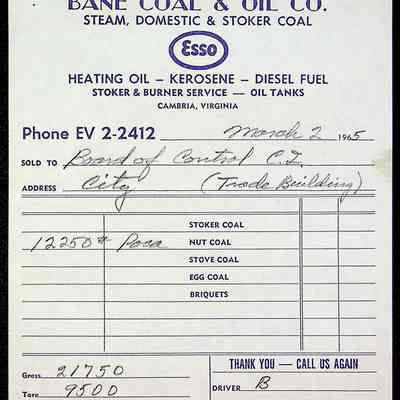 BANE COAL & OIL CO.
STEAM, DOMESTIC & STOKER COAL
Esso
HEATING OIL – KEROSENE – DIESEL FUEL
STOKER & BURNER SERVICE — OIL TANKS
CAMBRIA, VIRGINIA
Phone EV 2-2412 March 2 1965
SOLD TO Board of Control C.I.
ADDRESS City (Trade Building)
STOKER COAL
12250# Poca NUT COAL
STOVE COAL
EGG COAL
BRIQUETS
Gross 21750 THANK YOU — CALL US AGAIN
Tare 9500 DRIVER B